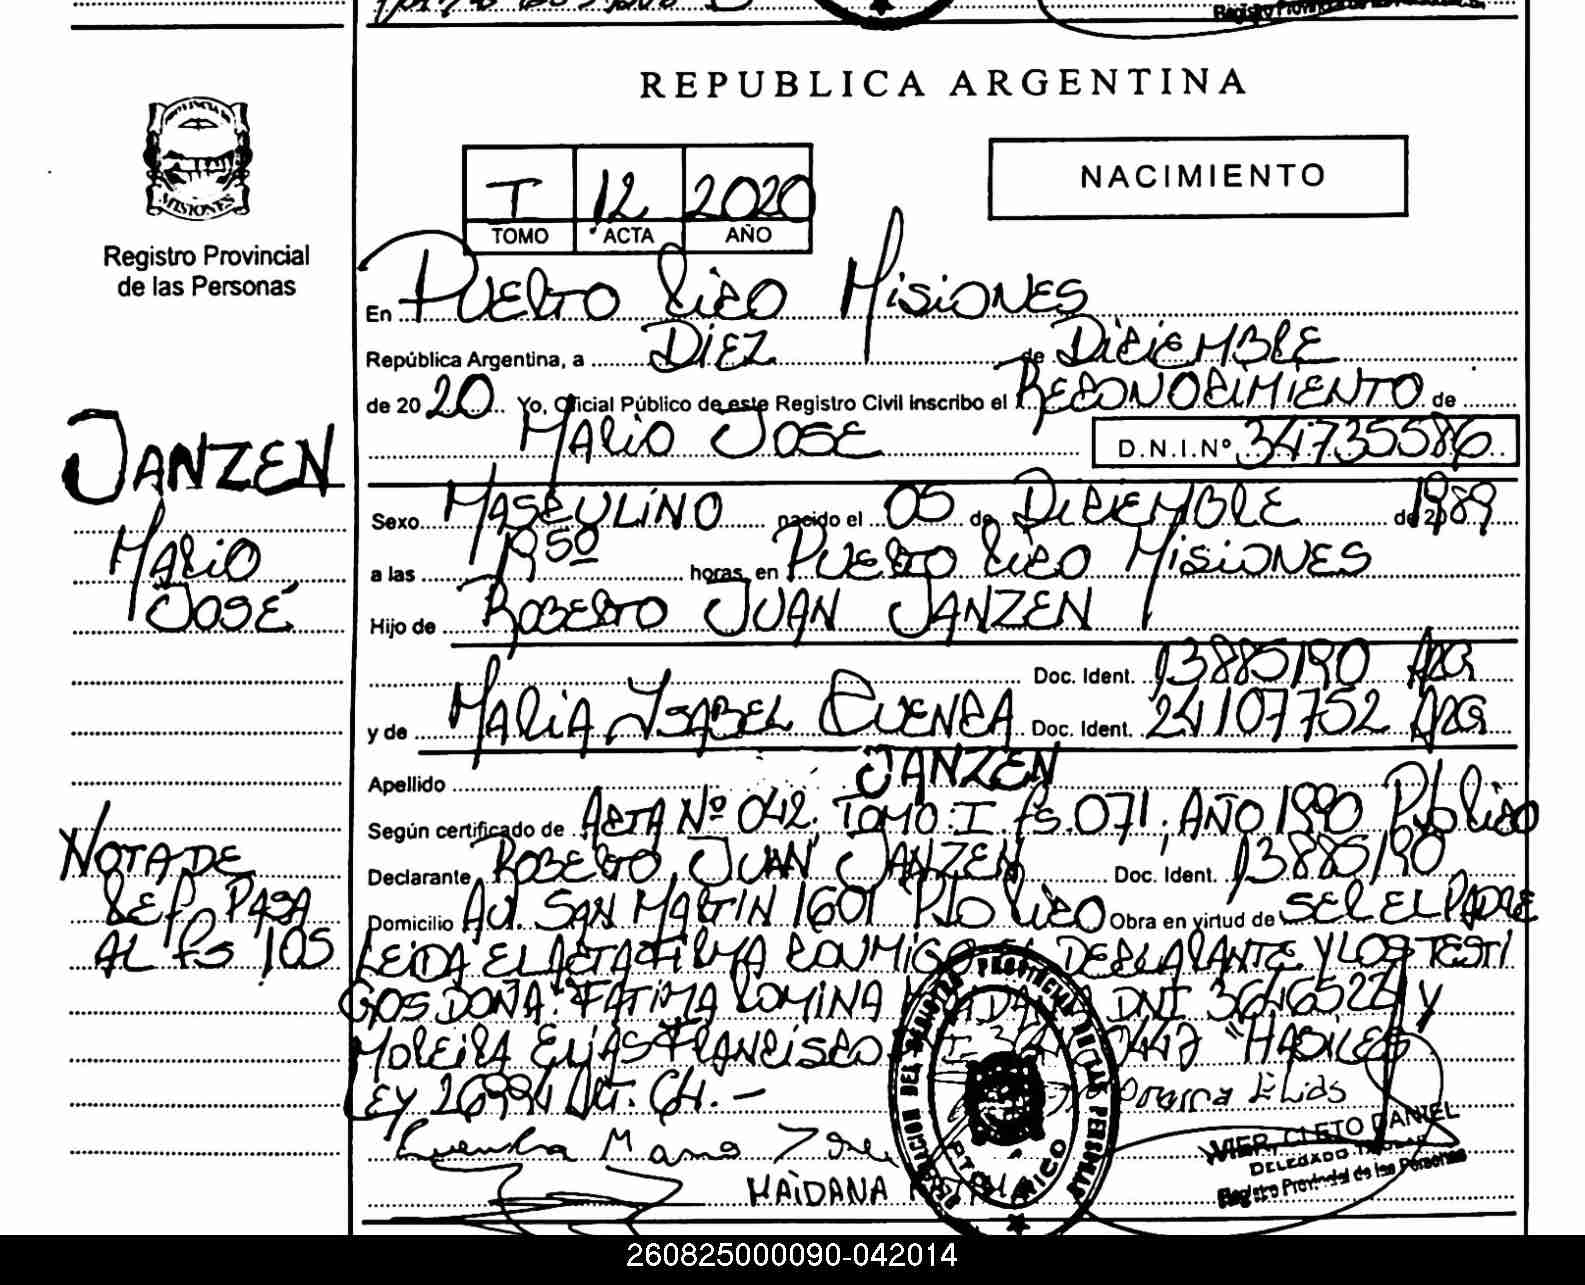 REPUBLICA ARGENTINA
PROVINCIA
MISIONES
Registro Provincial
de las Personas
I 12 2020
TOMO ACTA AÑO
NACIMIENTO
En PUERTO RICO MISIONES
República Argentina, a DIEZ de DICIEMBRE
de 20 20 Yo, Oficial Público de este Registro Civil Inscribo el RECONOCIMIENTO de
MARIO JOSE D.N.I.Nº 34735586
JANZEN
MARIO
JOSÉ
Sexo MASCULINO nacido el 05 de DICIEMBRE de 1989
a las 1950 horas, en PUERTO RICO MISIONES
Hijo de ROBERTO JUAN JANZEN
Doc. Ident. 13885190 ARG
y de MARIA YSABEL CUENCA Doc. Ident. 24107752 ARG
Apellido JANZEN
Según certificado de ACTA Nº 042. TOMO: I. fs. 071. AÑO 1990 Pto RICO
Declarante ROBERTO JUAN JANZEN Doc. Ident. 13885190
Domicilio AV. SAN MARTIN 1601 Pto RICO Obra en virtud de SER EL PADRE
NOTA DE
REF. PASA
AL fs 105
LEIDA EL ACTA FIRMA CONMIGO DECLARANTE Y LOS TESTI
GOS DOÑA: FATIMA ROMINA DNI 36465224 Y
MOREIRA ELIAS FRANCISCO "HABILES
LEY 26994 Art. 64. -
Elias
Maria
MAIDANA
VIER, CLETO DANIEL
DELEGADO
Registro Provincial de las Personas
DEL REGISTRO PROVINCIAL DE LAS PERSONAS
PTO. RICO
260825000090-042014